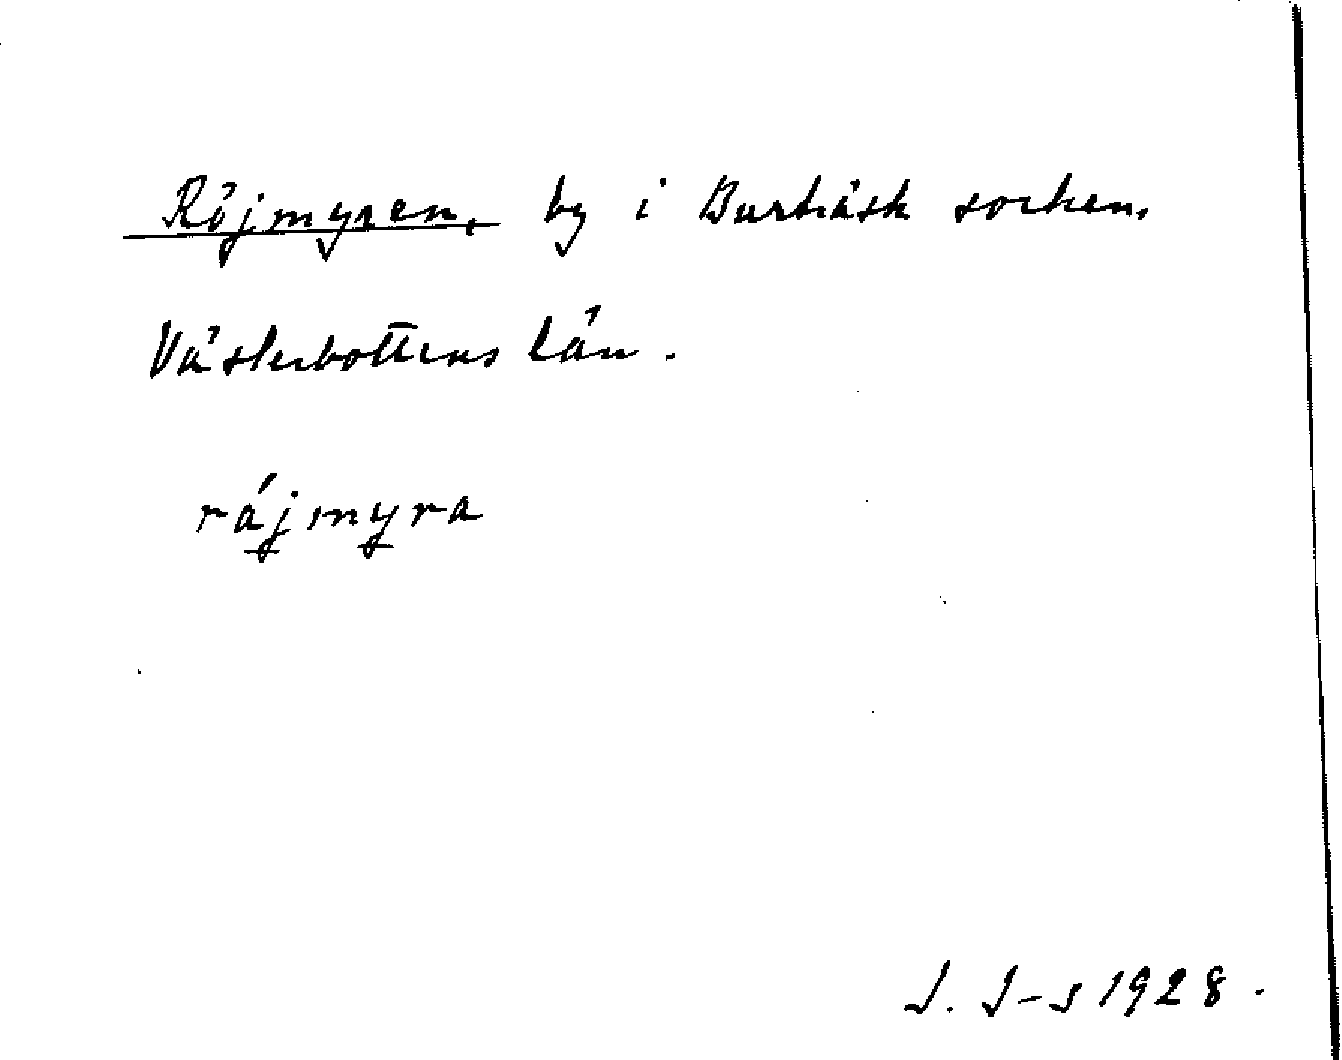 Röjmyren, by i Burträsk socken,
Västerbottens län.
rájmyra
J. J-s 1928.